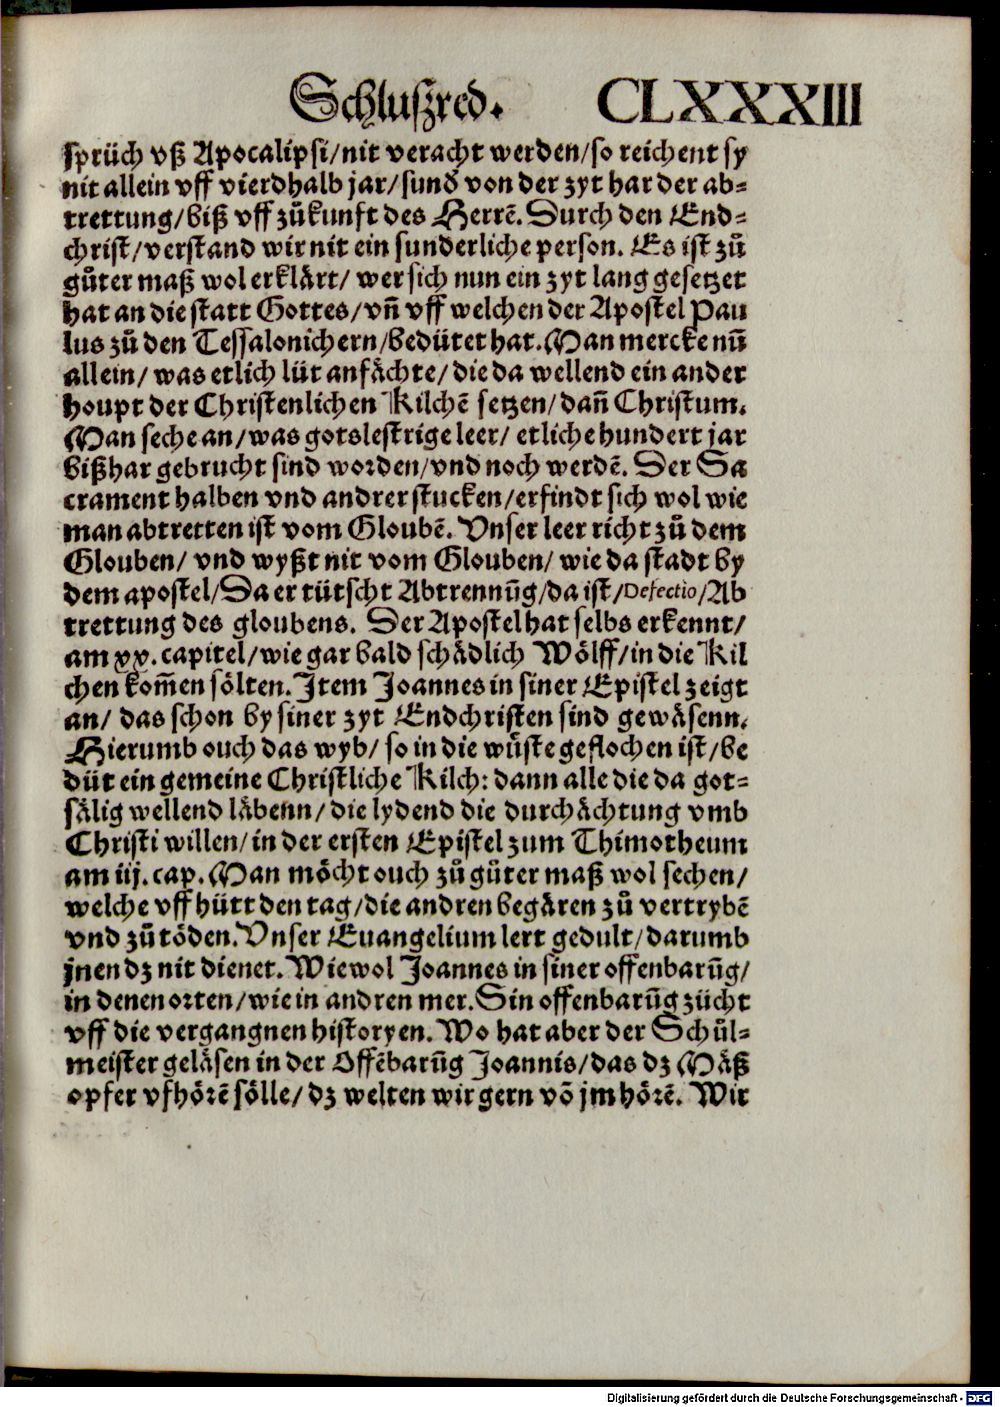 Schluſzred. CLXXXIII
ſprüch vß Apocalipſi/nit veracht werden/ſo reichent ſy
nit allein vff vierdhalb jar/ſund̕ von der zyt har der ab⸗
trettung/biß vff zůkunft des Herrē. Durch den End⸗
chriſt/verſtand wir nit ein ſunderliche perſon. Es iſt zů
gůter maß wol erklärt/ wer ſich nun ein zyt lang geſetzet
hat an die ſtatt Gottes/vñ vff welchen der Apoſtel Pau
lus zů den Teſſalonichern/bedütet hat. Man mercke nūn
allein/ was etlich lüt anfächte/die da wellend ein ander
houpt der Chriſtenlichen Kilchē ſetzen/dañ Chriſtum.
Man ſeche an/was gotsleſtrige leer/ etliche hundert jar
bißhar gebrucht ſind worden/vnd noch werdē. Der Sa
crament halben vnd andrer ſtucken/erfindt ſich wol wie
man abtretten iſt vom Gloubē. Vnſer leer richt zů dem
Glouben/ vnd wyßt nit vom Glouben/ wie da ſtadt by
dem apoſtel/Da er tütſcht Abtrennūg/da iſt/Defectio/Ab
trettung des gloubens. Der Apoſtel hat ſelbs erkennt/
am xx. capitel/wie gar bald ſchädlich Wölff/in die Kil
chen kom̄en ſölten. Item Joannes in ſiner Epiſtel zeigt
an/ das ſchon by ſiner zyt Endchriſten ſind gewäſenn.
Hierumb ouch das wyb/ ſo in die wůſte geflochen iſt/be
düt ein gemeine Chriſtliche Kilch: dann alle die da got⸗
ſälig wellend läbenn/ die lydend die durchächtung vmb
Chriſti willen/in der erſten Epiſtel zum Thimotheum
am iij. cap. Man möcht ouch zů gůter maß wol ſechen/
welche vff hütt den tag/die andren begären zů vertrybē
vnd zů töden. Vnſer Euangelium lert gedult/darumb
jnen dz nit dienet. Wiewol Joannes in ſiner offenbarūg/
in denen orten/wie in andren mer. Sin offenbarūg zücht
vff die vergangnen hiſtoryen. Wo hat aber der Schůl⸗
meiſter geläſen in der Offēbarūg Joannis/das dz Mäß
opfer vfhörē ſölle/ dz welten wir gern vō jm hörē. Wir
Digitalisierung gefördert durch die Deutsche Forschungsgemeinschaft - DFG